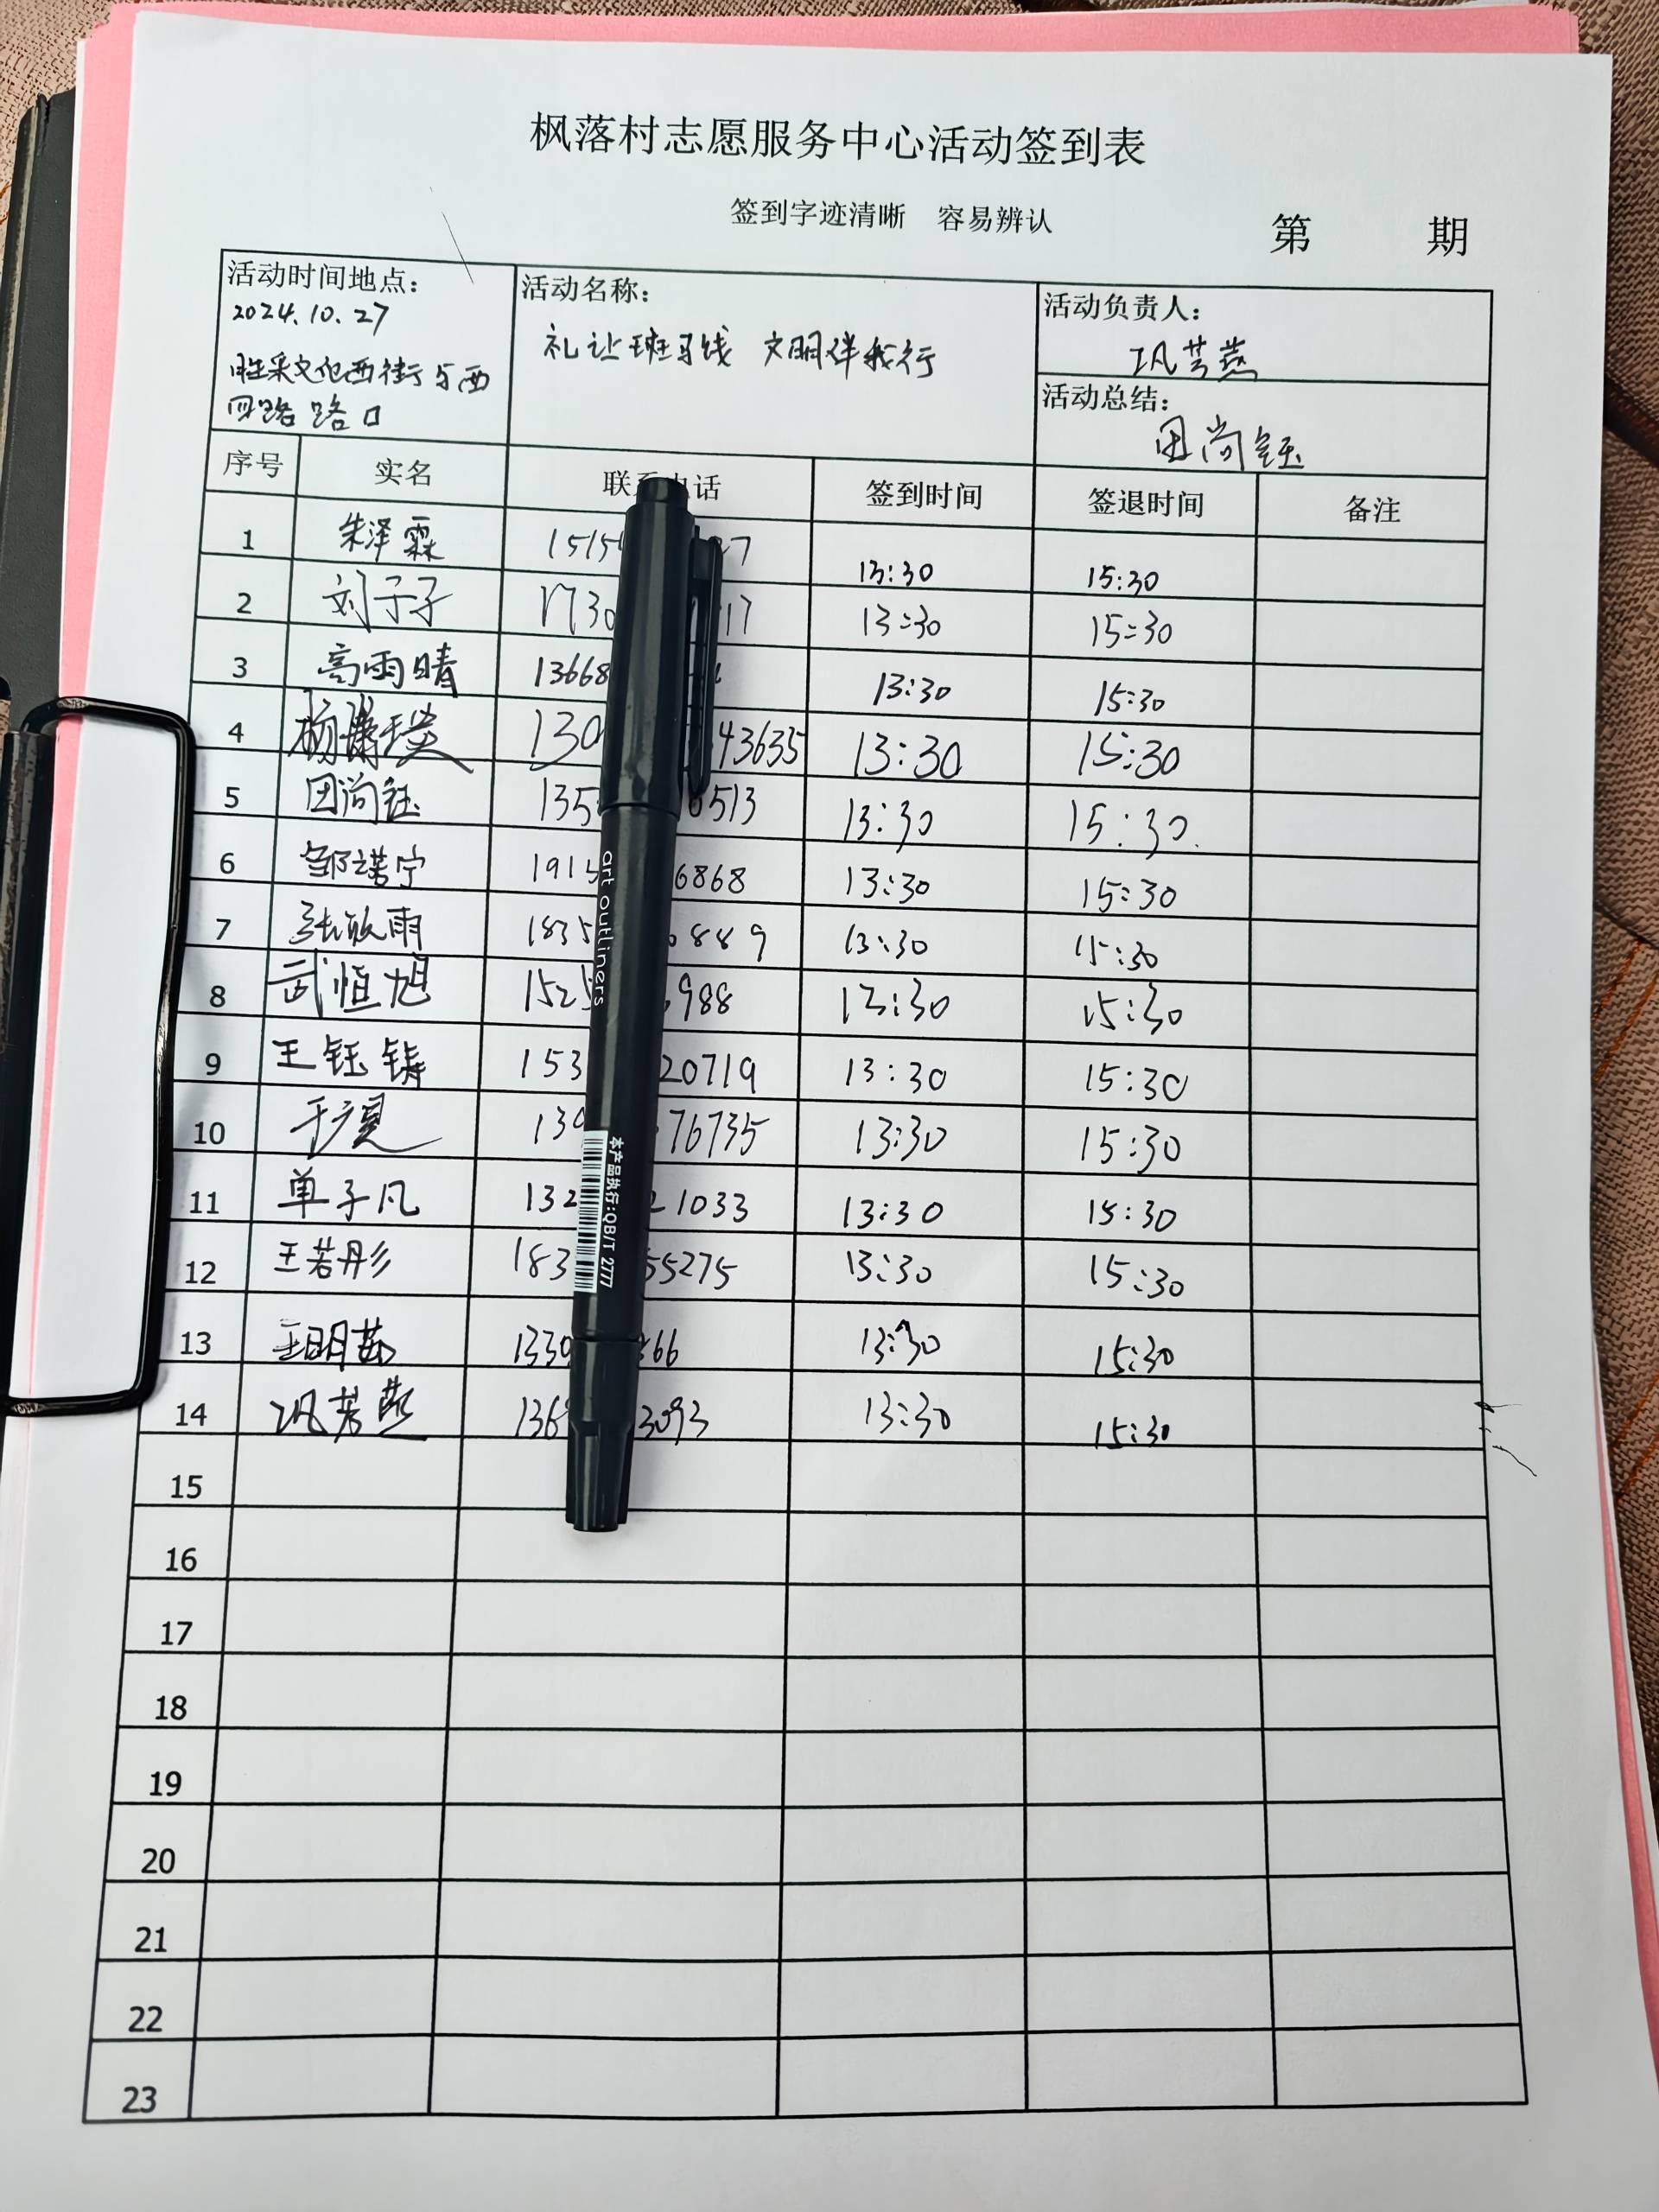 枫落村志愿服务中心活动签到表
签到字迹清晰 容易辨认 第 期
活动时间地点： 活动名称： 活动负责人：
2024.10.27
礼让班马线 文明伴我行
巩芳燕
胜采文化西街与西
四路路口
活动总结：
田尚钰
序号 实名 联系电话 签到时间 签退时间 备注
1 朱泽霖 1515 27 13:30 15:30
2 刘子子 1730 17 13:30 15:30
3 高雨晴 13668 13:30 15:30
4 杨 130 43635 13:30 15:30
5 田尚钰 135 0513 13:30 15:30
6 邹诺宁 1915 6868 13:30 15:30
7 张欣雨 1835 889 13:30 15:30
8 武恒旭 1525 988 13:30 15:30
9 王钰铸 153 20719 13:30 15:30
10 139 76735 13:30 15:30
11 单子凡 132 21033 13:30 15:30
12 王若彤 183 55275 13:30 15:30
13 王明茹 1339 66 13:30 15:30
14 巩芳燕 136 3093 13:30 15:30
15
16
17
18
19
20
21
22
23
art outliners
本产品执行:QB/T 2777